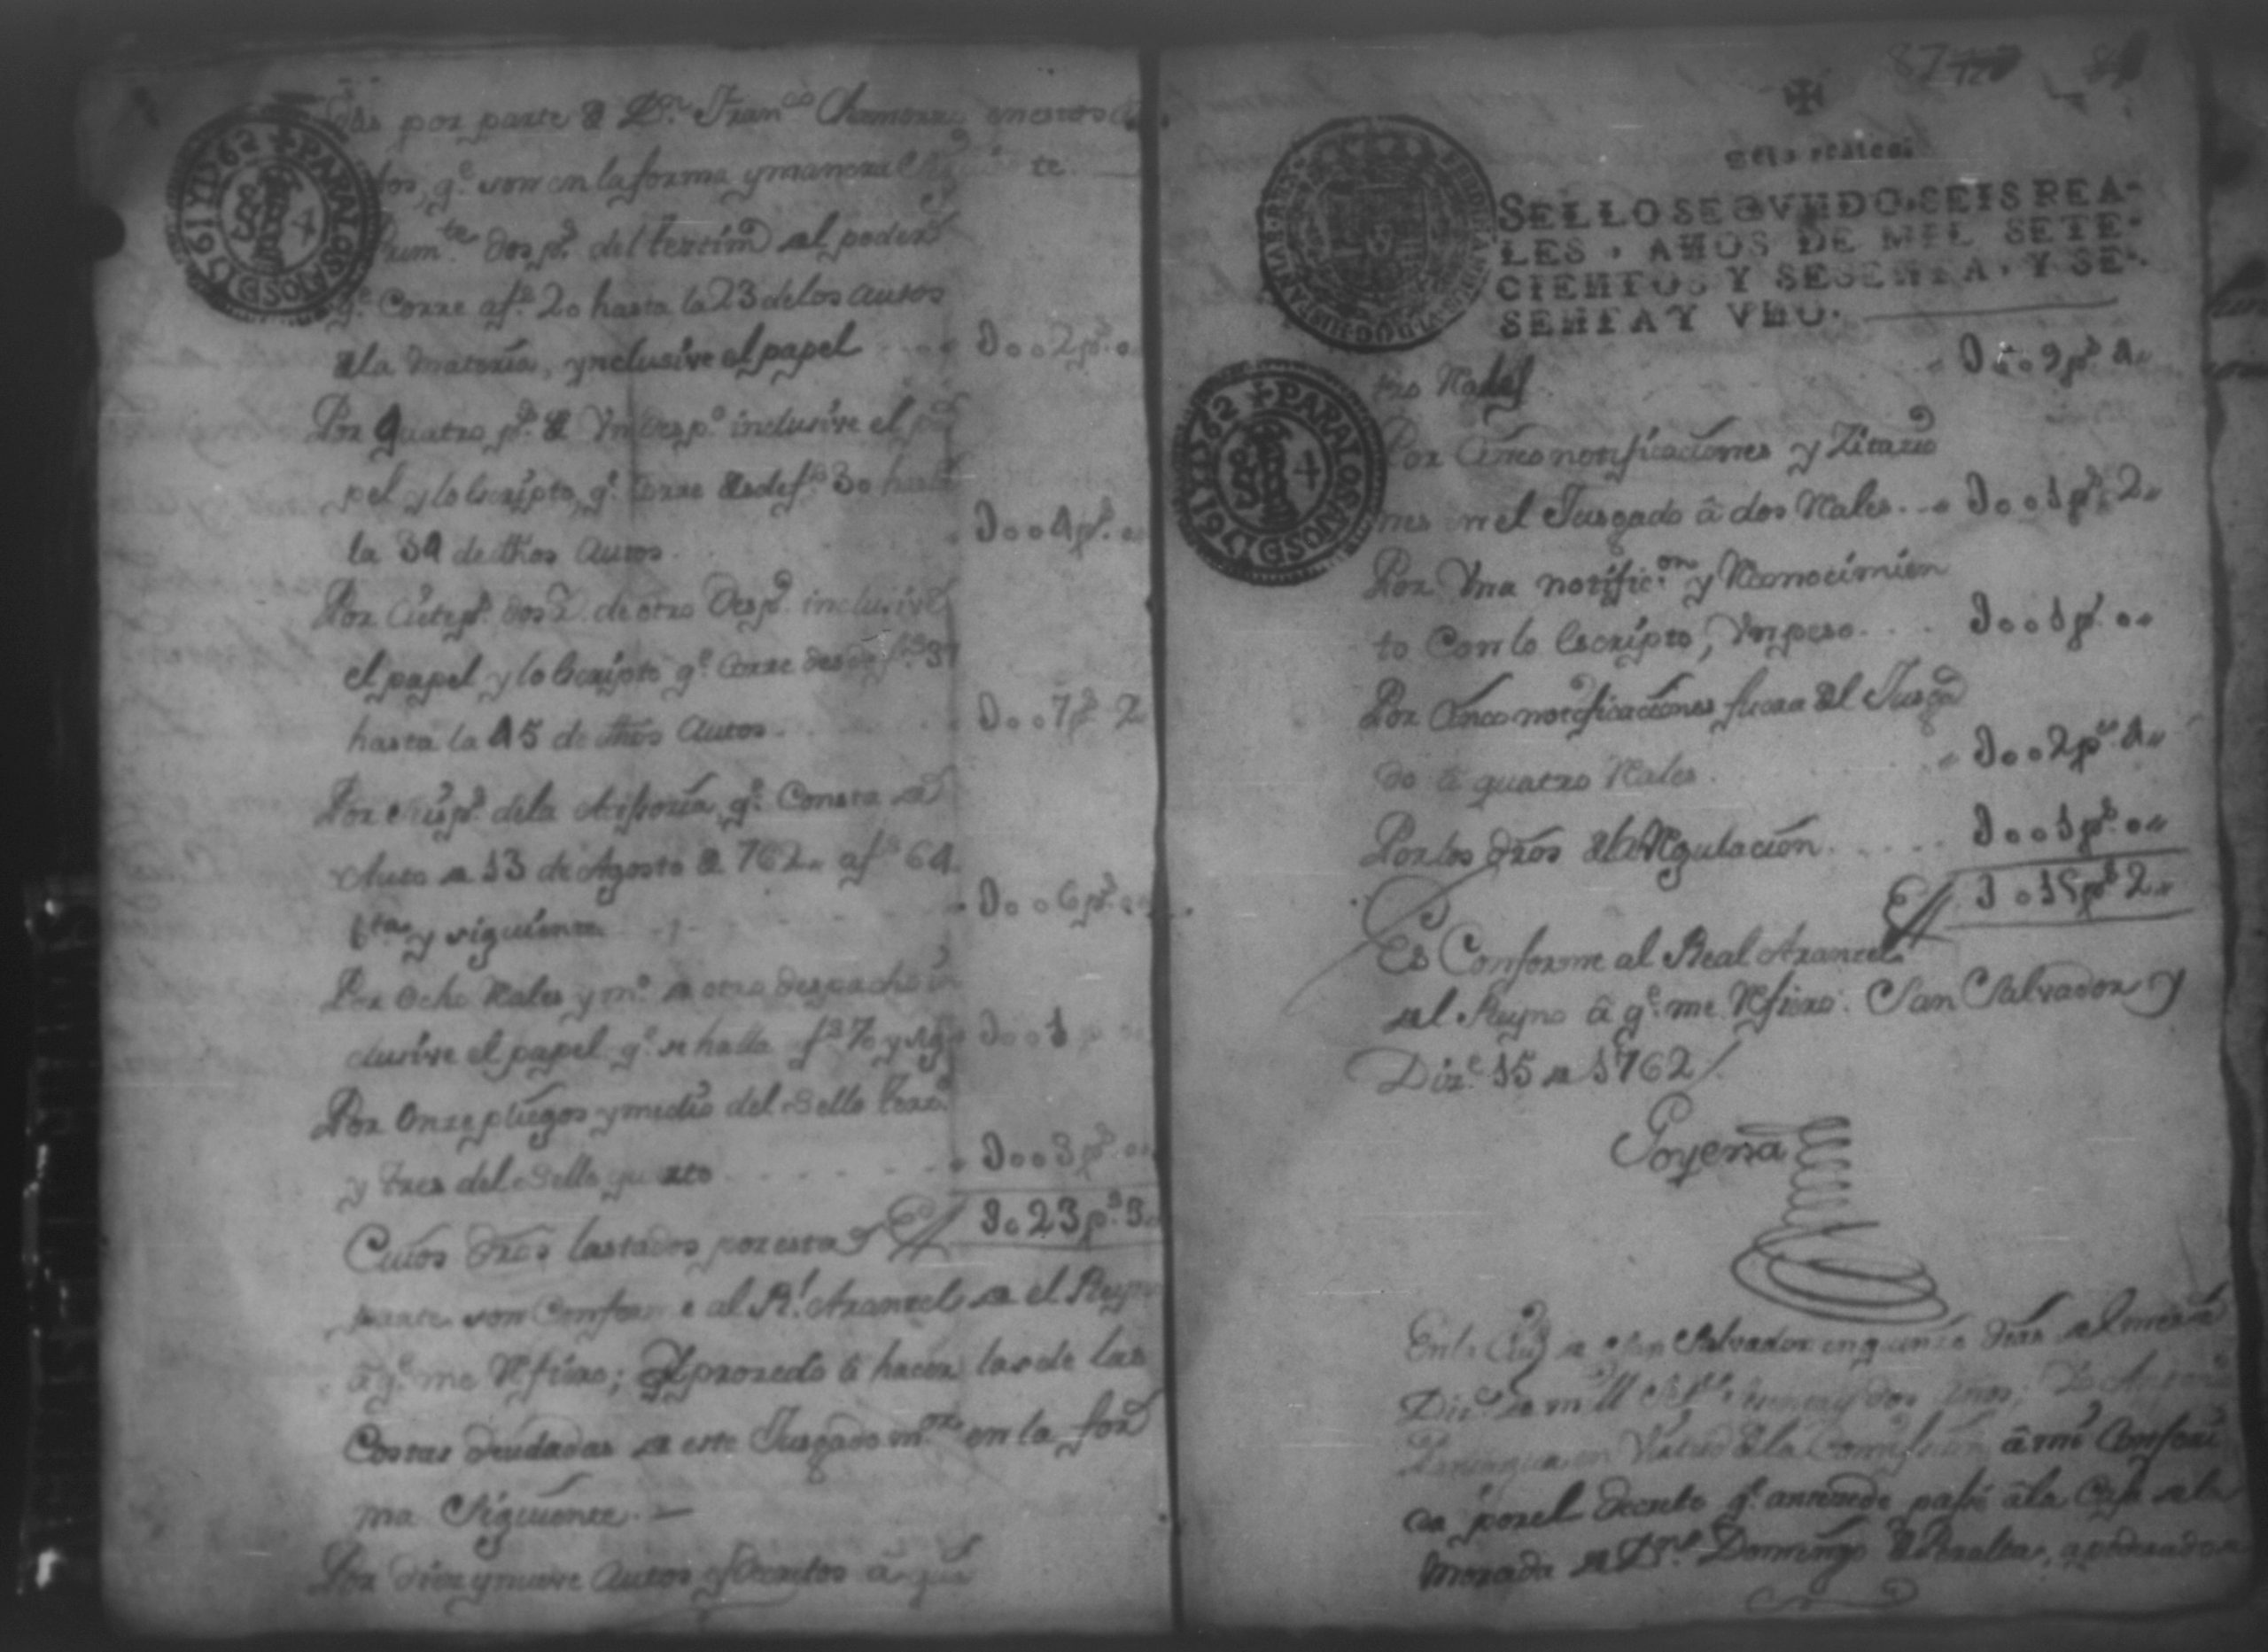 das por parte de Dn. Franco Chamorro en estos
tos, qe. son en la forma y manera te.
Primte. dos ps. del testimo. del poder
qe. Corre a fs. 20 hasta la 23 de los autos
de la materia, ynclusive el papel D002ps.
Por quatro ps. de Un Desp.o inclusive el pa
pel y lo Escripto, qe. Corre desde fs. 30 hasta
la 34 de dhos Autos D004ps.
Por ciete ps. dos rs. de otro Desp.o inclusive
el papel y lo Escripto qe. Corre desde fs. 37
hasta la 45 de dhos Autos D007ps. 2
Por seis ps. de la Asesoría, qe. Consta del
Auto de 13 de Agosto de 762 a fs. 64
bta. y siguiente D006ps.
Por ocho Rales y mo. de otro despacho in
clusive el papel qe. se halla fs. 76 y sig D001
Por Onze pliegos y medio del Sello terzo.
y tres del Sello quarto D003ps.
Cuios dros lastados por esta D023ps. 3
parte son Conforme al Rl. Aranzel de el Reyno
â qe. me Refiero; y prozedo â hacer las de las
Costas deudadas de este Juzgado en la for
ma Siguiente.
Por diez y nueve Autos y Decretos â
87
Seis reales.
SELLO SEGVNDO, SEIS REA-
LES, AÑOS DE MIL SETE-
CIENTOS Y SESENTA, Y SE-
SENTA Y VNO.
tro Rales D009ps. 4
Por Cinco notificaciones y Zitazio
nes en el Jusgado â dos Rales D001ps. 2
Por Una notific.on y Reconocimien
to Con lo Escripto, Un peso D001ps.
Por Cinco notificaciones fuera del Jusga
do â quatro Rales D002ps. 4
Por los dros de la Regulacion D001ps.
D015ps. 2
Es Conforme al Real Aranzel
del Reyno â qe. me Refiero. San Salvador y
Dize. 15 de 1762
Goyena
En la Ciud. de San Salvador en quinze dias del mes de
Dize. de mill y dos años; Dn.
en Virtud de la Comission â mi Conferi
da por el Decreto qe. antecede passé â la Casa de la
morada de Dn. Domingo de Peralta, apoderado
PARA LOS AÑOS D 1761 Y D 62
PARA LOS AÑOS D 1761 Y D 62